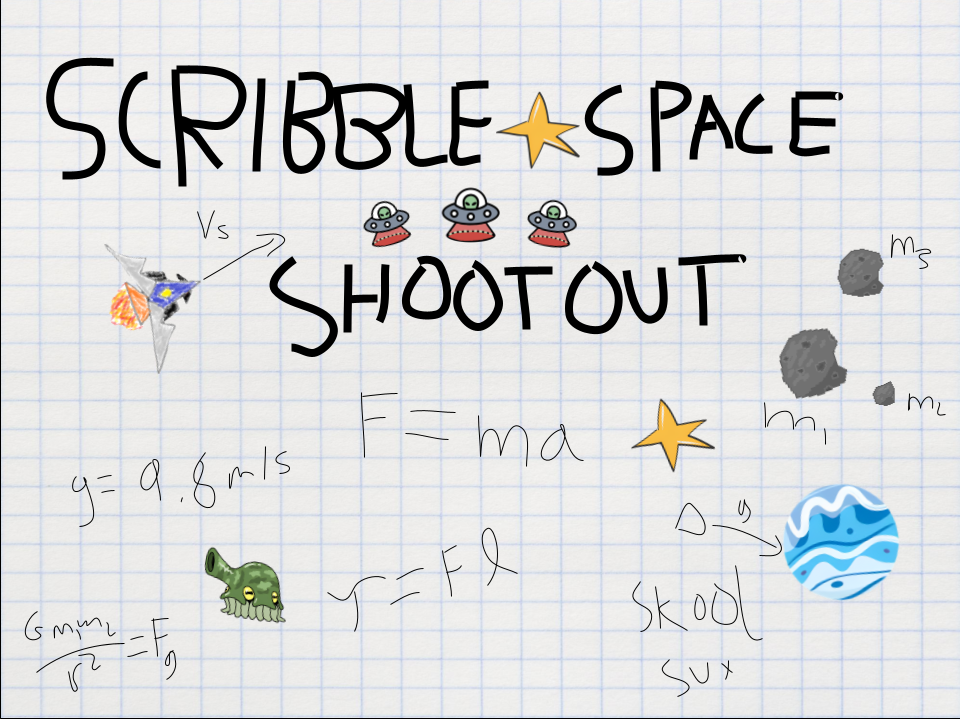 SCRIBBLE SPACE
SHOOTOUT
Vs
m3
m1
m2
F = ma
g = 9.8 m/s
g
τ = Fl
Skool
sux
G m1m2 / r² = Fg